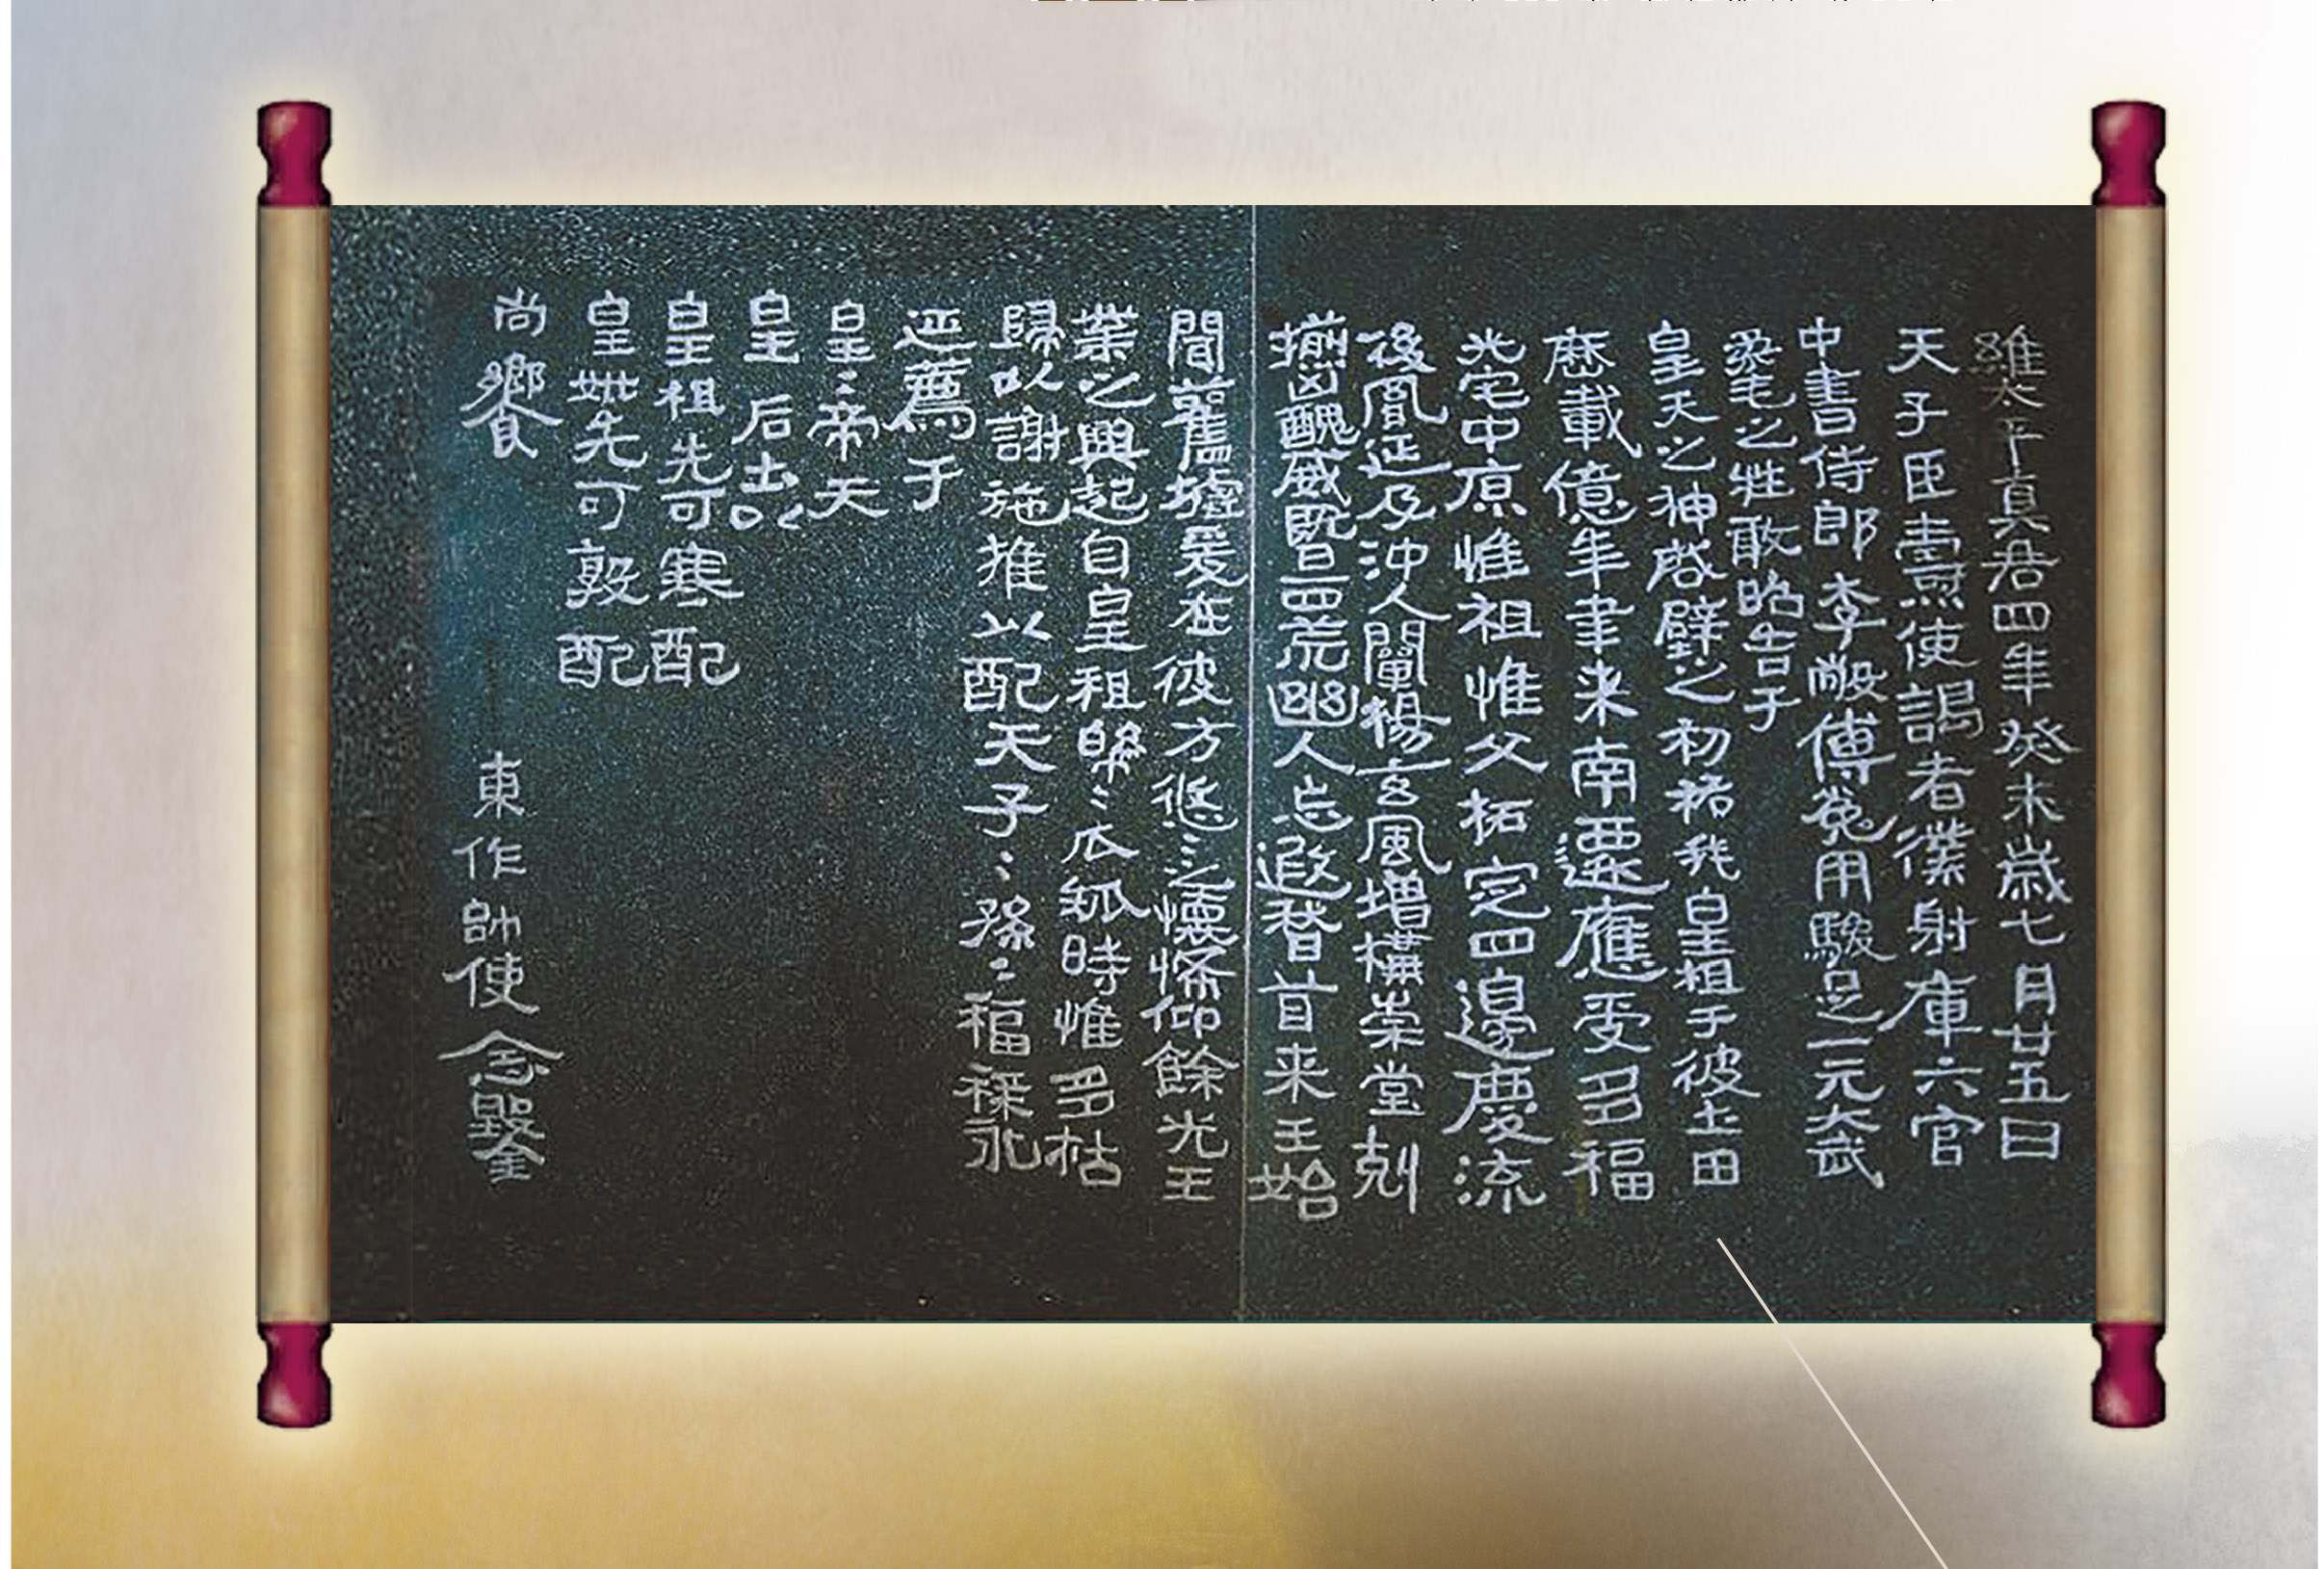 維太平真君四年癸未歲七月廿五日
天子臣燾使謁者僕射庫六官
中書侍郎李敞傅㝹用駿足一元大武
柔毛之牲敢昭告于
皇天之神啟辟之初祐我皇祖于彼土田
歷載億年聿来南遷應受多福
光宅中原惟祖惟父拓定四邊慶流
後胤延及沖人闡揚玄風增構崇堂剋
揃凶醜威暨四荒幽人忘遐稽首来王始
間舊墟爰在彼方悠〻之懷希仰餘光王
業之興起自皇祖綿〻瓜瓞時惟多祜
歸以謝施推以配天子〻孫〻福祿永
延薦于
皇〻帝天
皇 后土以
皇祖先可寒配
皇妣先可敦配
尚饗
東作帥使念鑿